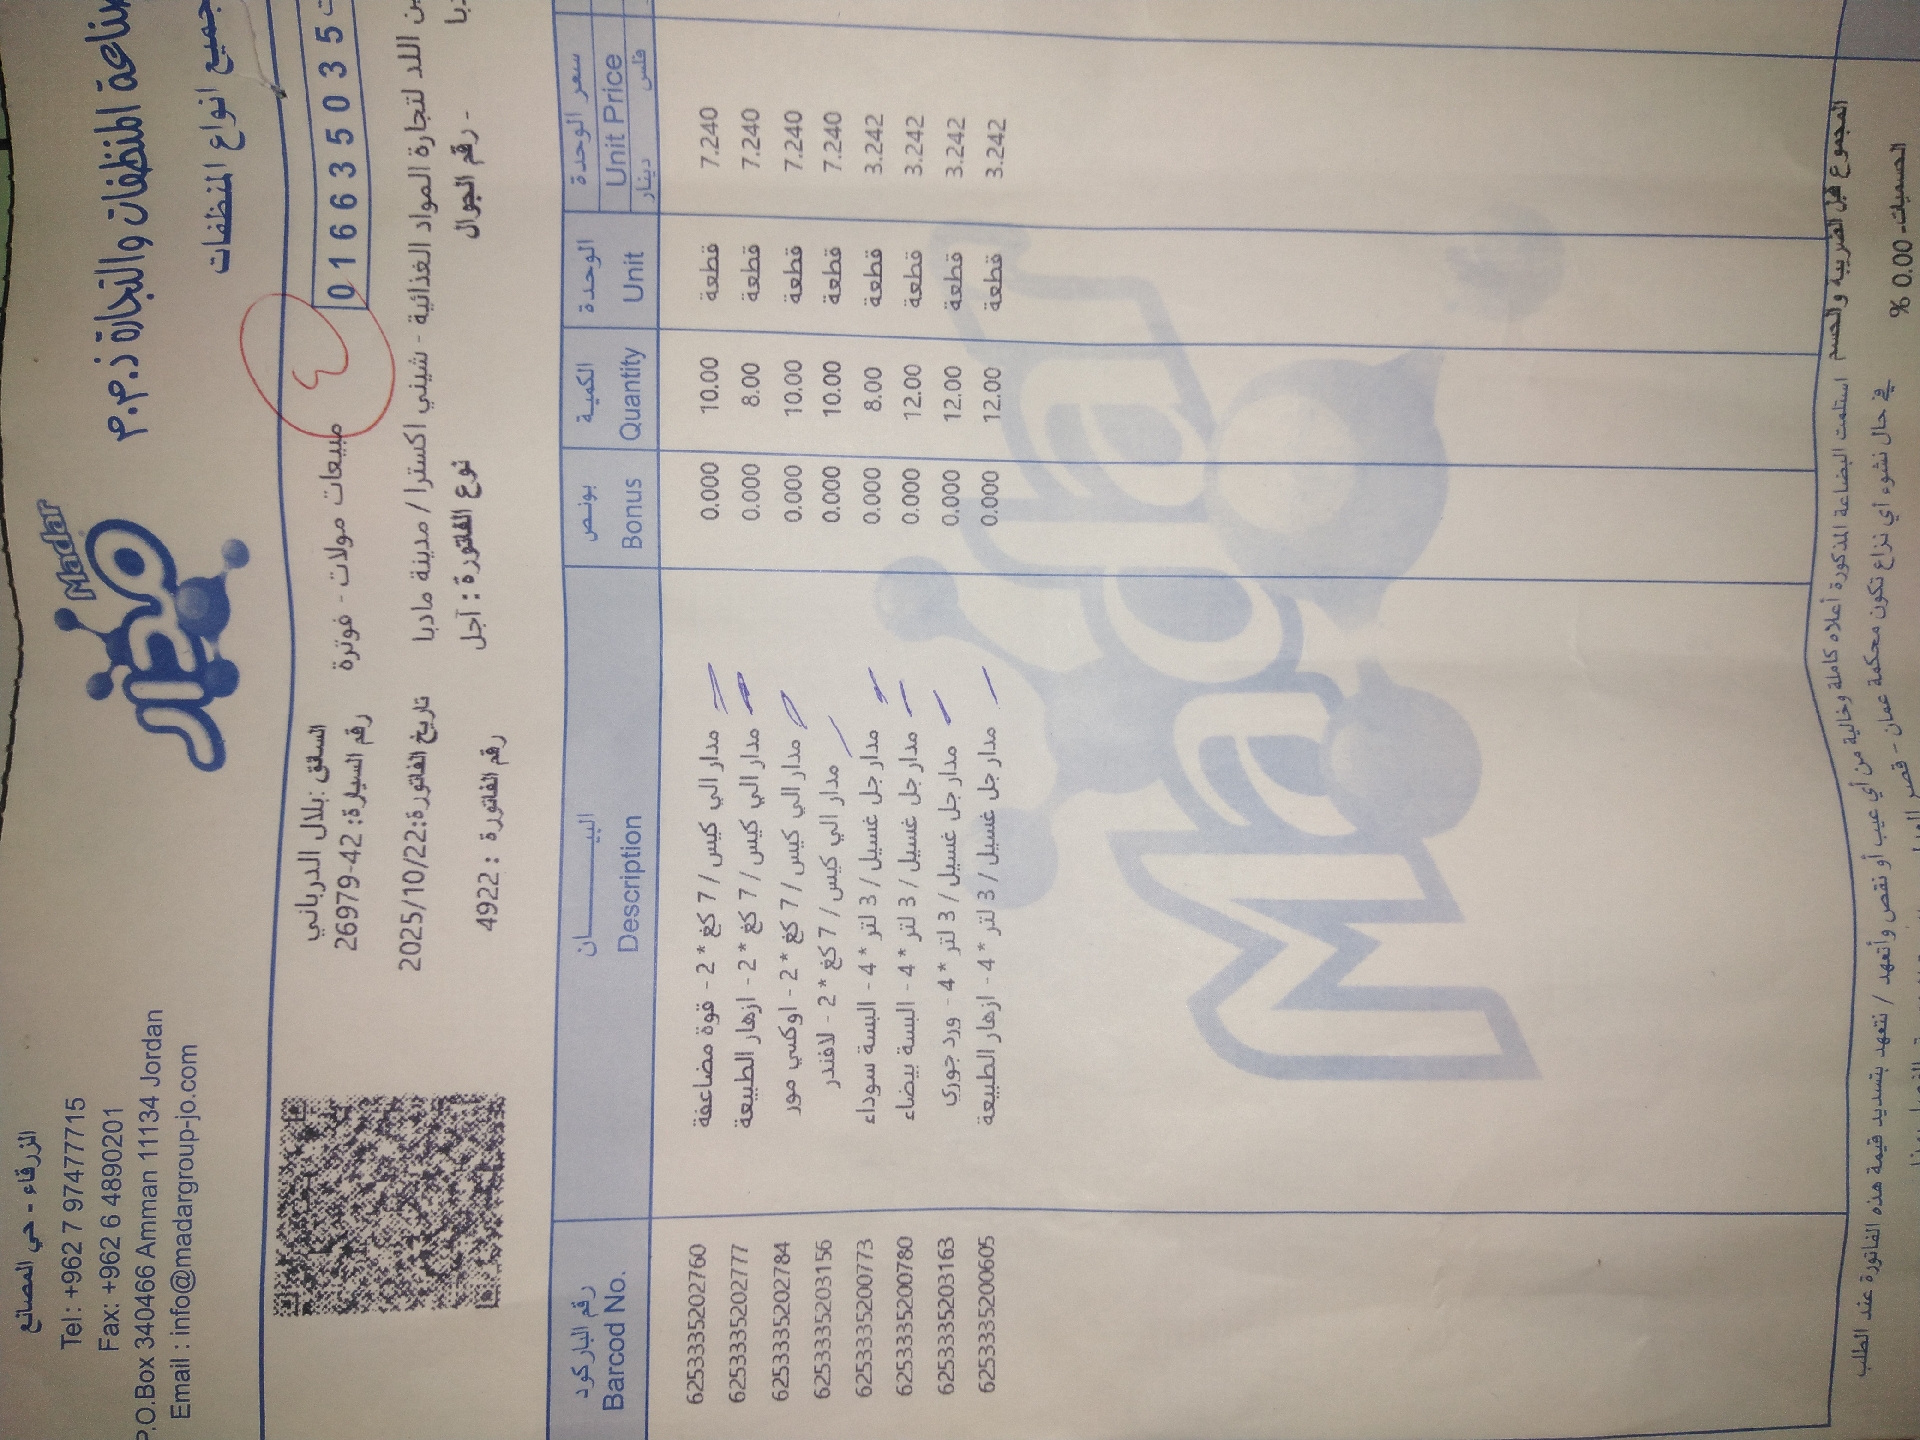 الزرقاء - حي المصانع
Tel: +962 7 97477715
Fax: +962 6 4890201
P.O.Box 340466 Amman 11134 Jordan
Email : info@madargroup-jo.com
Madar
مدار
المنظفات والتجارة ذ.م.م
جميع انواع المنظفات
السائق :بلال الدرباني
مبيعات مولات - فوترة
٤
0 1 6 6 3 5 0 3 5
رقم السيارة: 42-26979
تاريخ الفاتورة:2025/10/22
اللد لتجارة المواد الغذائية - شيني اكسترا / مدينة مادبا
رقم الفاتورة : 4922
نوع الفاتورة : آجل
- رقم الجوال
رقم الباركود البيـــــــان بونص الكمية الوحدة سعر الوحدة
Barcod No. Description Bonus Quantity Unit Unit Price
دينار فلس
6253335202760 مدار الي كيس / 7 كغ * 2 - قوة مضاعفة 0.000 10.00 قطعة 7.240
6253335202777 مدار الي كيس / 7 كغ * 2 - ازهار الطبيعة 0.000 8.00 قطعة 7.240
6253335202784 مدار الي كيس / 7 كغ * 2 - اوكسي مور 0.000 10.00 قطعة 7.240
6253335203156 مدار الي كيس / 7 كغ * 2 - لافندر 0.000 10.00 قطعة 7.240
6253335200773 مدار جل غسيل / 3 لتر * 4 - البسة سوداء 0.000 8.00 قطعة 3.242
6253335200780 مدار جل غسيل / 3 لتر * 4 - البسة بيضاء 0.000 12.00 قطعة 3.242
6253335203163 مدار جل غسيل / 3 لتر * 4 - ورد جوري 0.000 12.00 قطعة 3.242
6253335200605 مدار جل غسيل / 3 لتر * 4 - ازهار الطبيعة 0.000 12.00 قطعة 3.242
Madar
المجموع قبل الضريبة والحسم
استلمت البضاعة المذكورة أعلاه كاملة وخالية من أي عيب أو نقص وأتعهد / نتعهد بتسديد قيمة هذه الفاتورة عند الطلب
الحسميات- 0.00 %
في حال نشوء اي نزاع تكون محكمة عمان - قصر